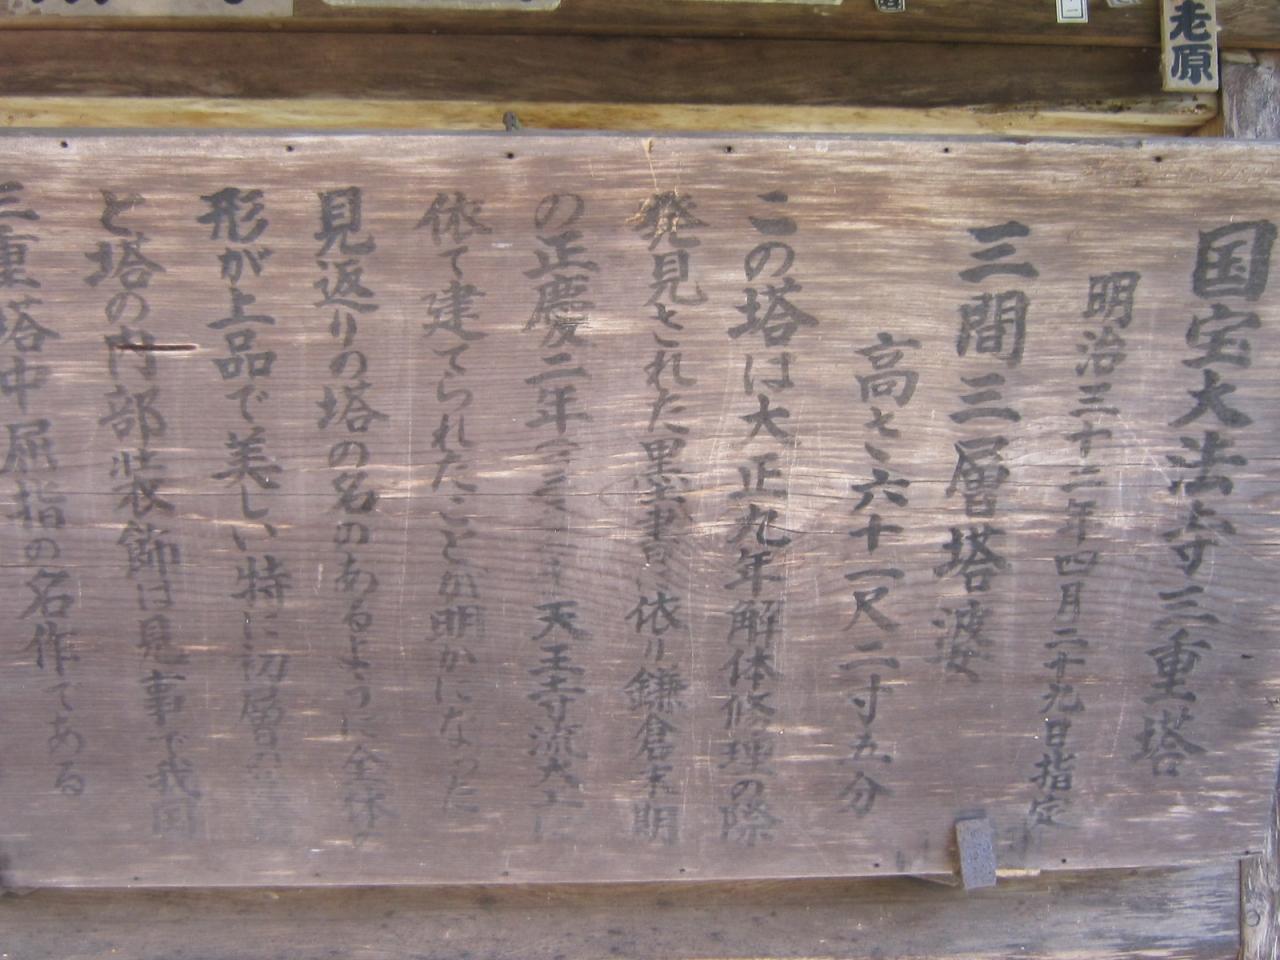 国宝大法寺三重塔
明治三十三年四月二十九日指定
三間三層塔婆
高さ六十一尺二寸五分
この塔は大正九年解体修理の際
発見された墨書に依り鎌倉末期
の正慶二年 天王寺流大工に
依て建てられたことが明かになった
見返りの塔の名のあるように全体の
形が上品で美しい特に初層の
と塔の内部装飾は見事で我国
三重塔中屈指の名作である
老原